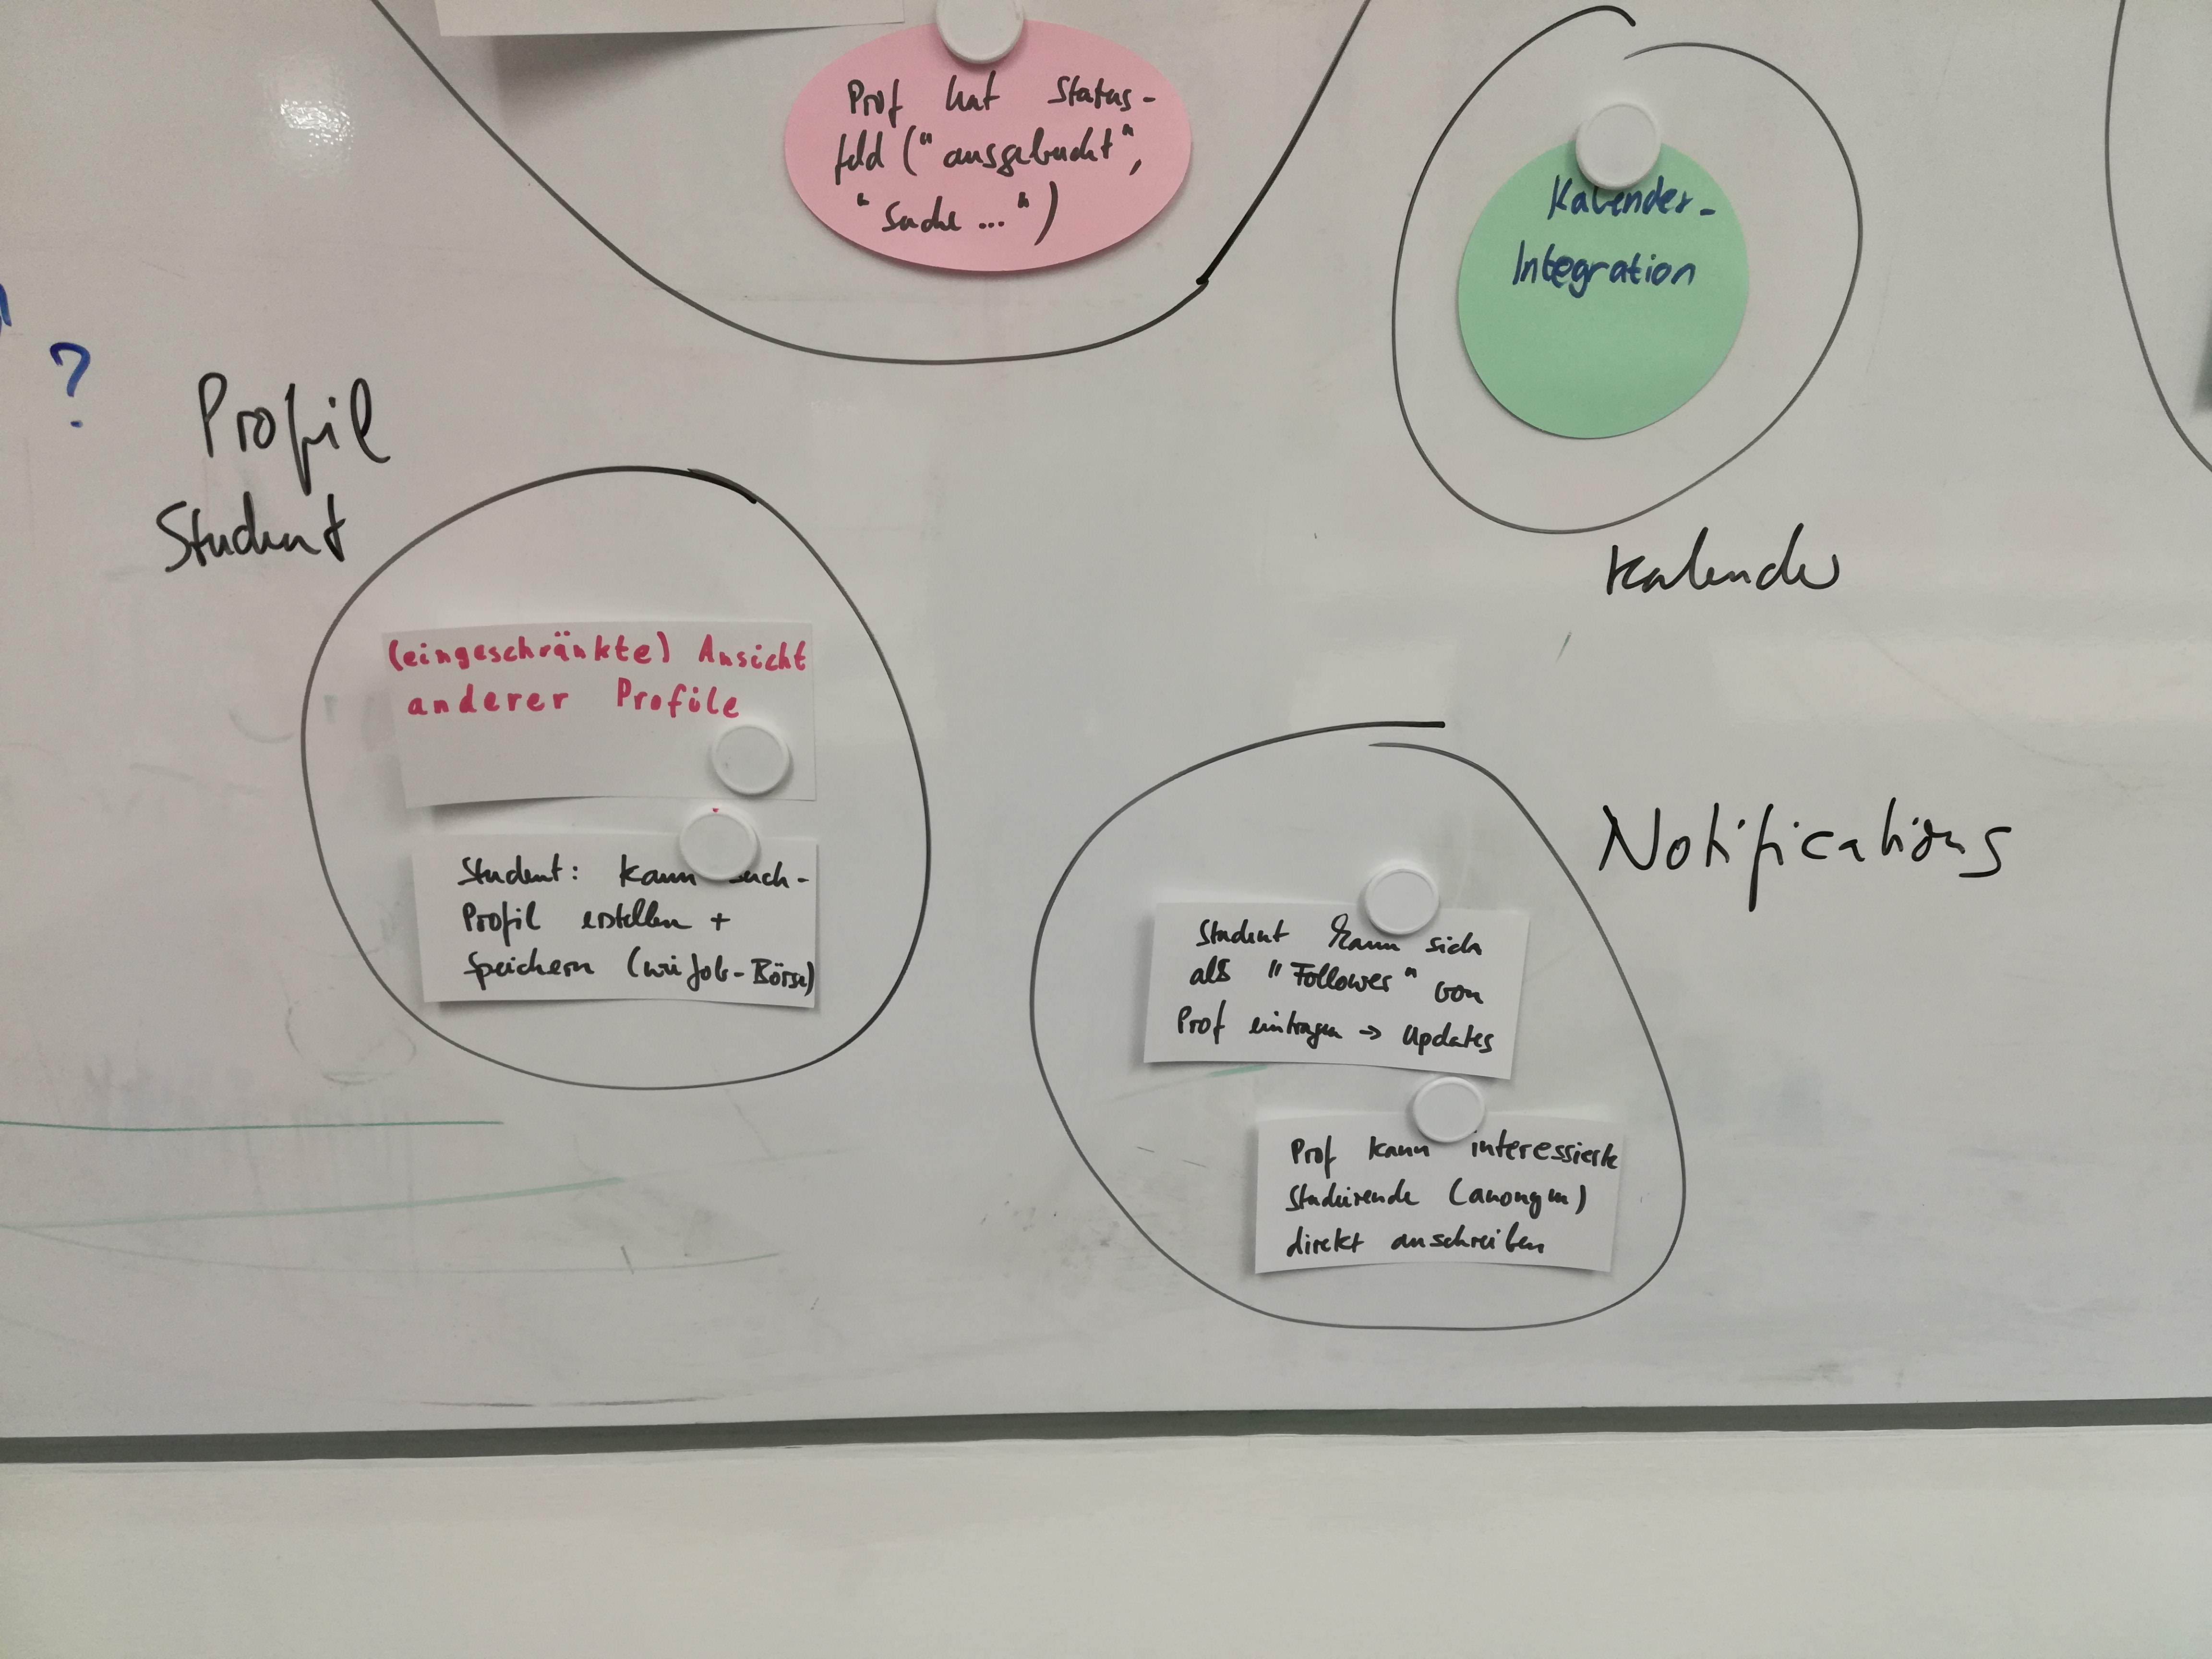 Prof hat Status-
feld ("ausgebucht",
"Suche ...")
Kalender-
Integration
Kalender
?
Profil
Student
(eingeschränkte) Ansicht
anderer Profile
Student: kann Such-
Profil erstellen +
speichern (wie Job-Börse)
Notifications
Student kann sich
als "Follower" von
Prof eintragen → Updates
Prof kann interessierte
Studierende (anonym)
direkt anschreiben